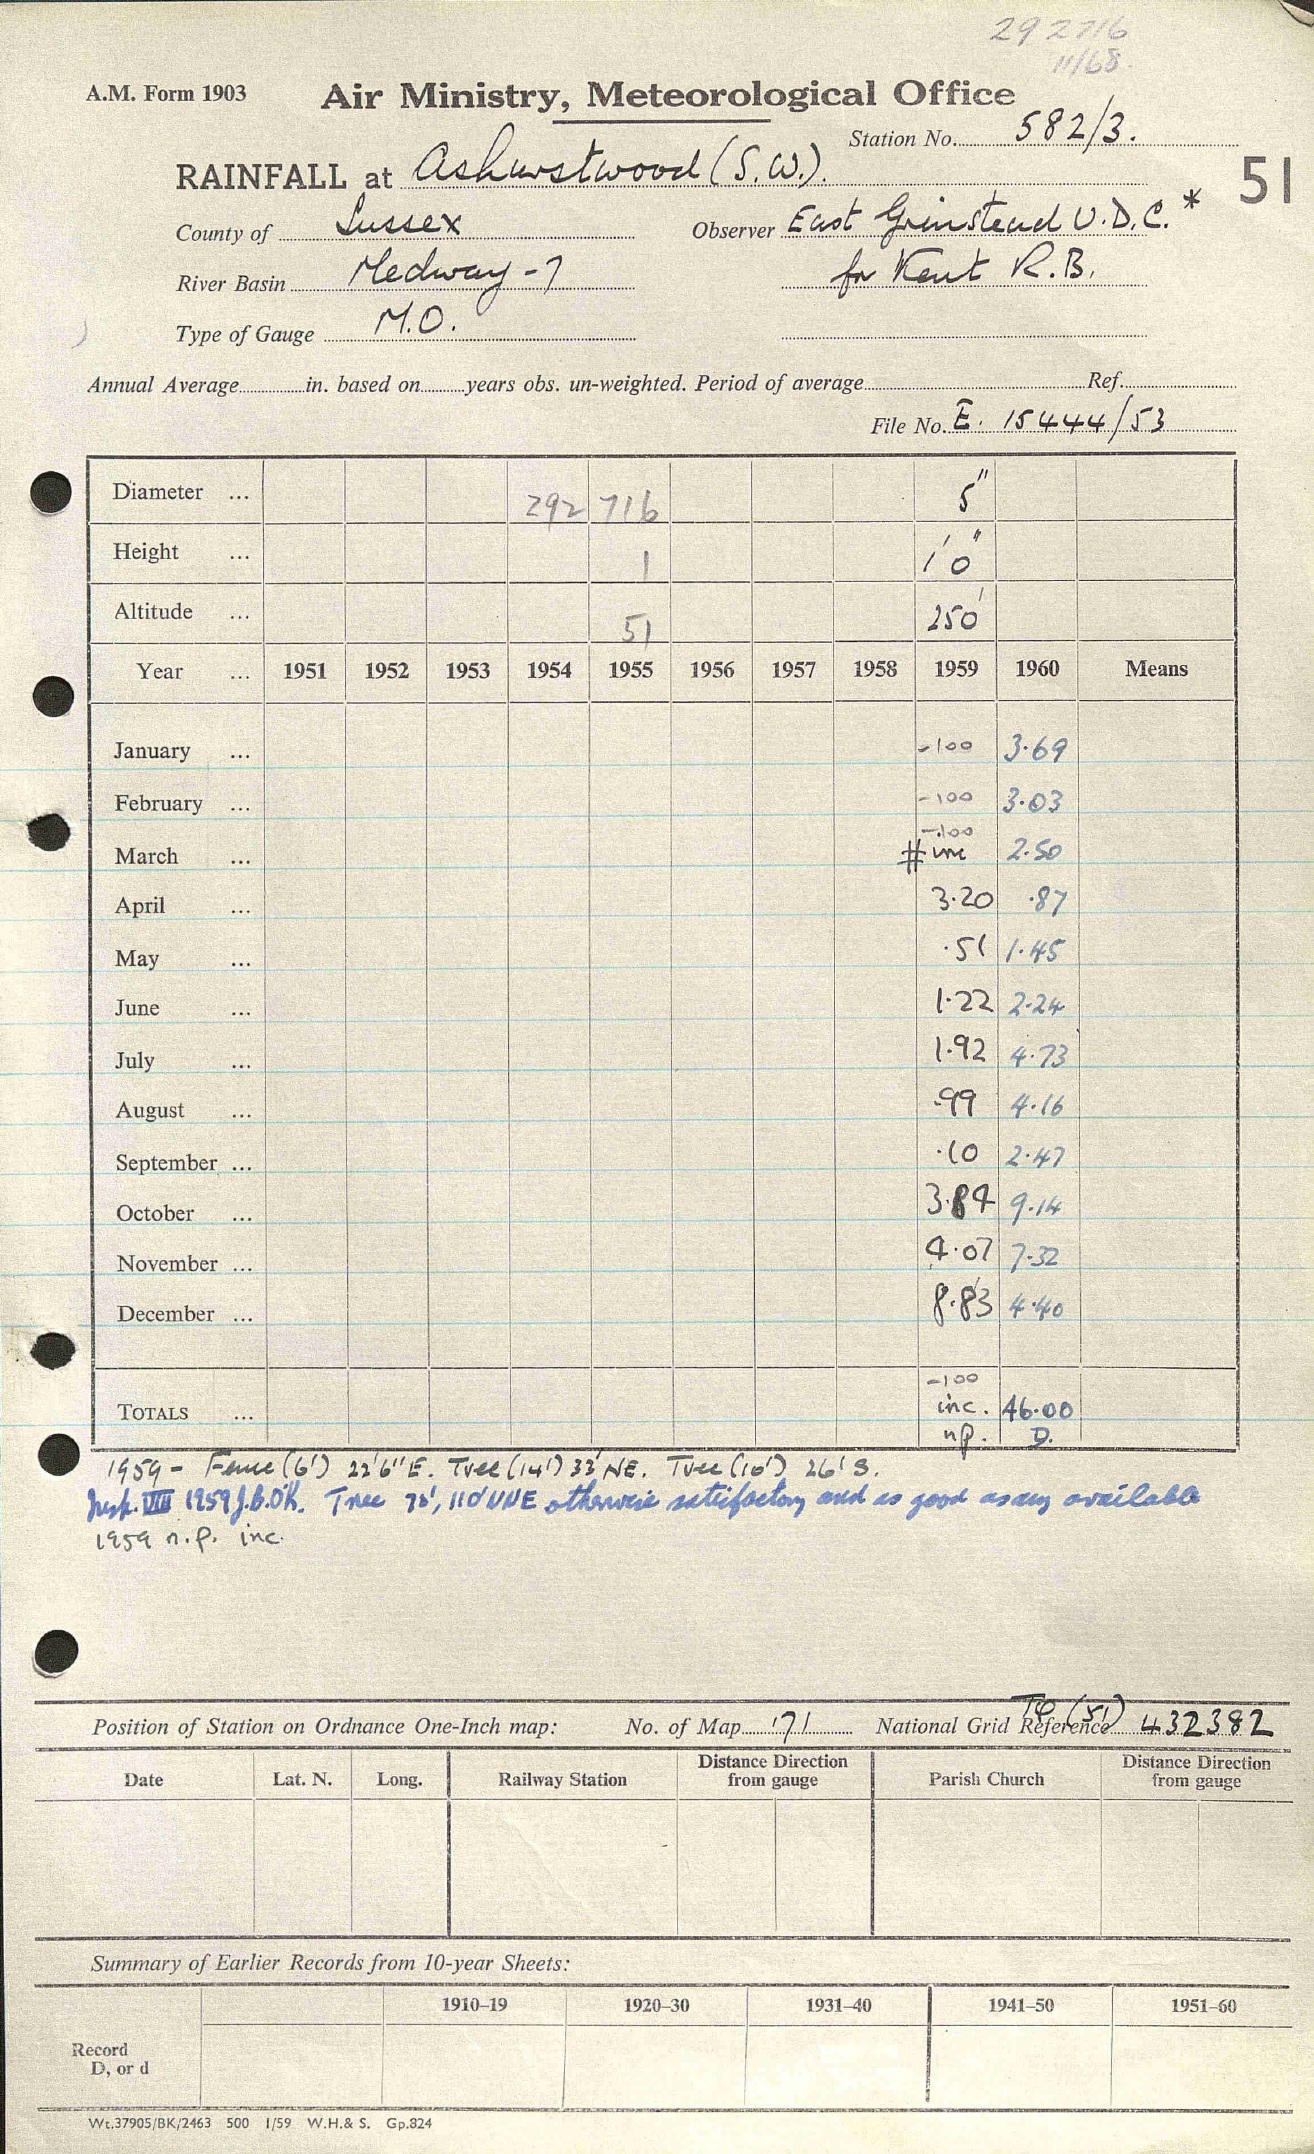 292716
11/68.
A.M. Form 1903 Air Ministry, Meteorological Office
Station No. 582/3.
RAINFALL at Ashurstwood (S.W.). 51
County of Sussex Observer East Grinstead U.D.C. *
River Basin Medway - 7 for Kent R.B.
Type of Gauge M.O.
Annual Average in. based on years obs. un-weighted. Period of average Ref.
File No. E. 15444/53
Diameter ... 292 716 5"
Height ... 1 1' 0"
Altitude ... 51 250'
Year ... 1951 1952 1953 1954 1955 1956 1957 1958 1959 1960 Means
January ... -100 3.69
February ... -100 3.03
-100
March ... # inc 2.50
April ... 3.20 .87
May ... .51 1.45
June ... 1.22 2.24
July ... 1.92 4.73
August ... .99 4.16
September ... .10 2.47
October ... 3.84 9.14
November ... 4.07 7.32
December ... 8.83 4.40
-100
TOTALS ... inc. 46.00
np. D.
1959 - Fence (6') 22'6" E. Tree (14') 33' NE. Tree (10') 26' S.
Insp. VIII 1959 J.B.OK. Tree 70', 110' NNE otherwise satisfactory and as good as any available
1959 n.p. inc.
Position of Station on Ordnance One-Inch map: No. of Map 171 National Grid Reference TQ (51) 432382
Date Lat. N. Long. Railway Station Distance Direction from gauge Parish Church Distance Direction from gauge
Summary of Earlier Records from 10-year Sheets:
1910–19 1920–30 1931–40 1941–50 1951–60
Record
D, or d
Wt.37905/BK/2463 500 1/59 W.H.& S. Gp.824